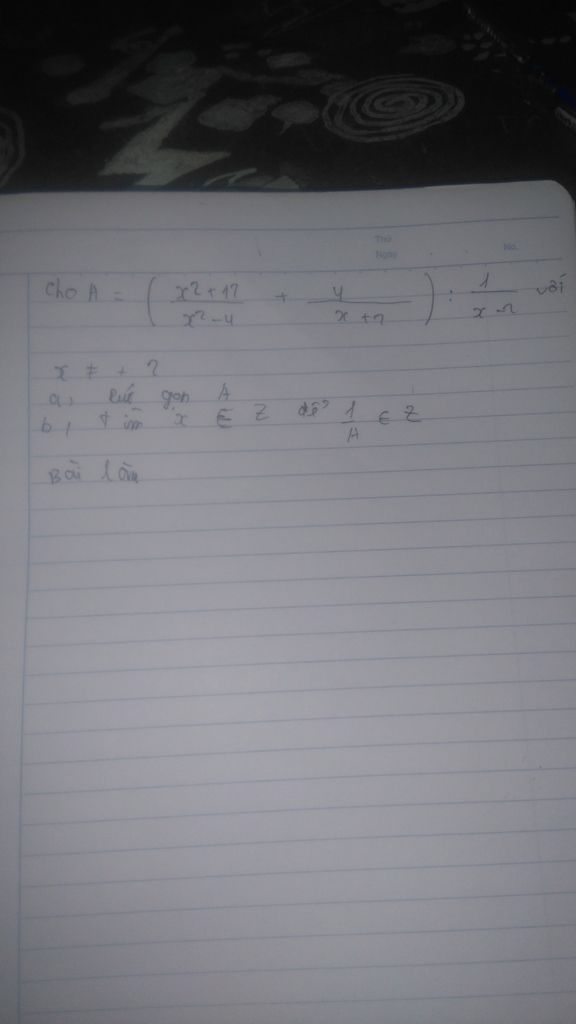 Thứ
Ngày
No.
Cho A = ( x²+12 / x²-4 + 4 / x+2 ) : 1 / x-2 với
x ≠ ± 2
a, Rút gọn A
b, tìm x ∈ Z để 1/A ∈ Z
Bài làm